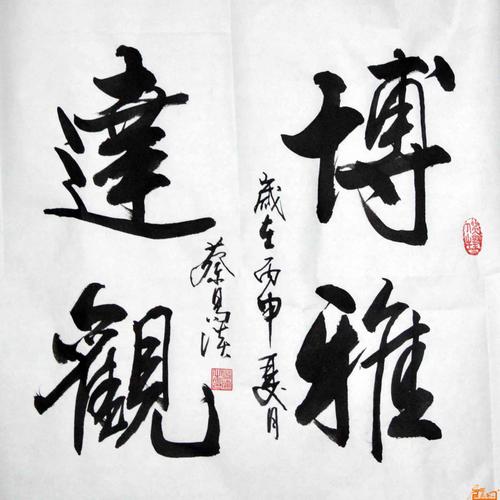 博雅
達觀
歲在丙申夏月
蔡昌漢